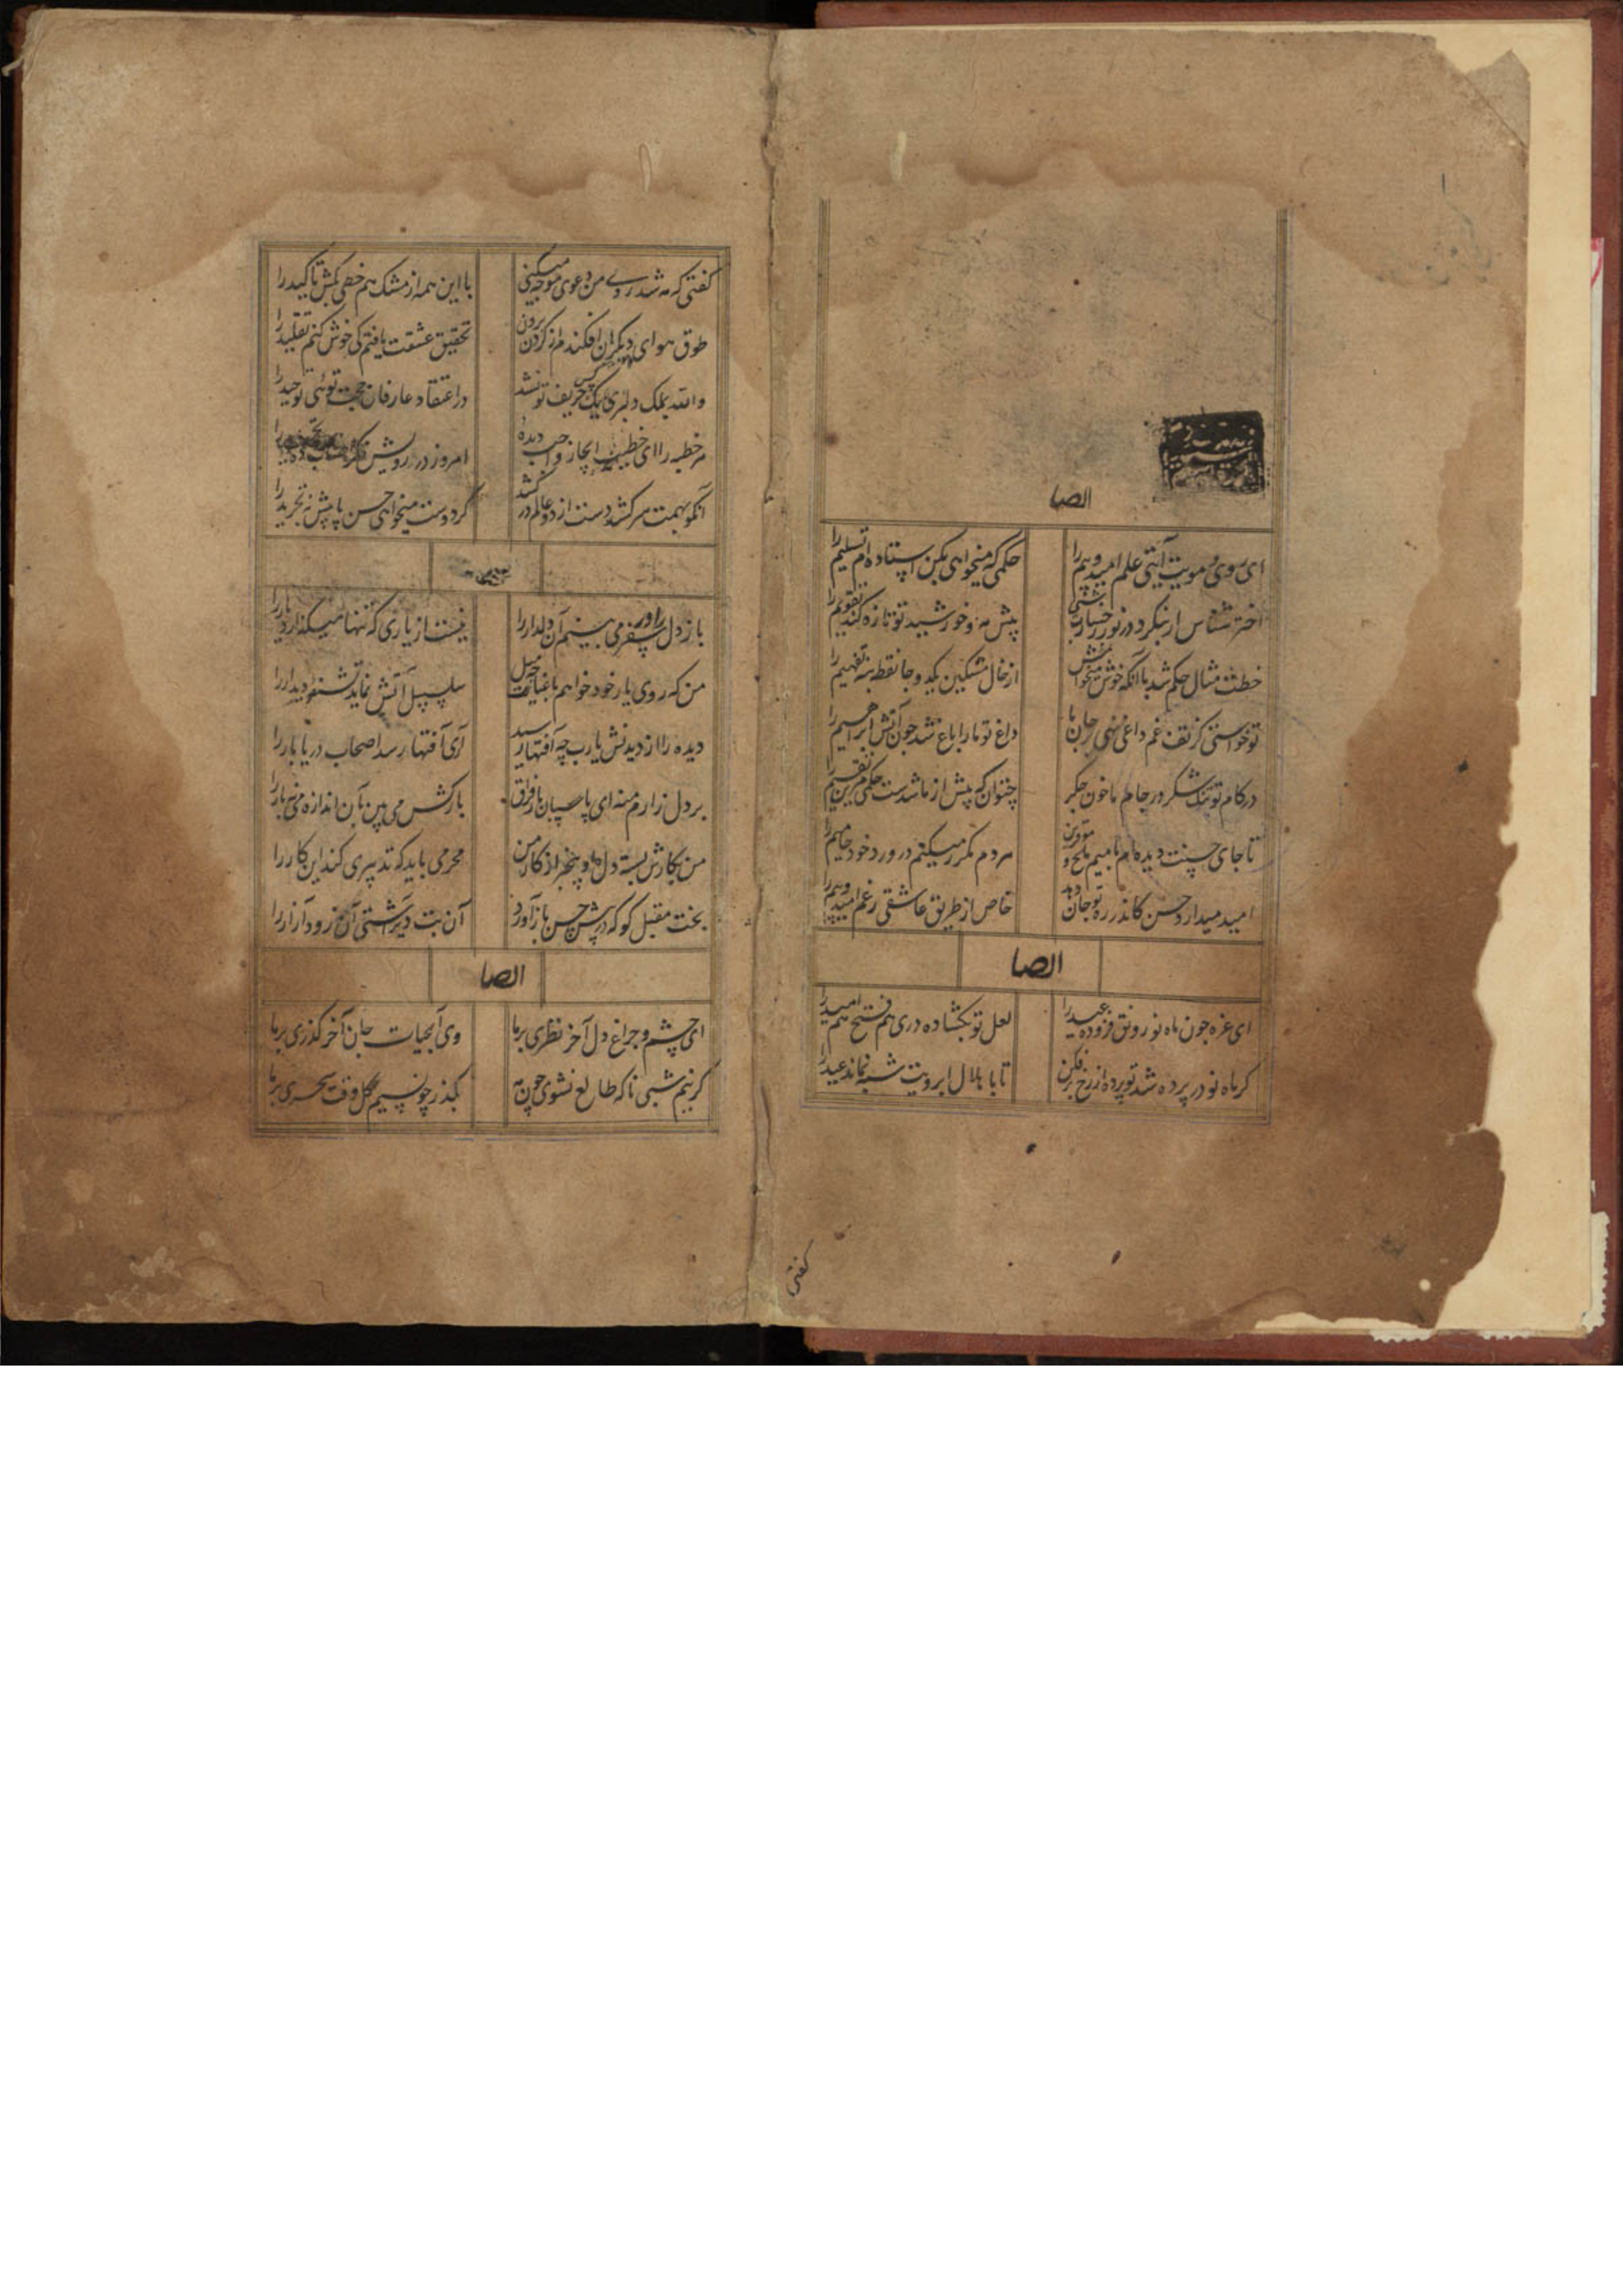 ایضا
ای روی و مویت آیتی علم امید و بیم را
حکمی که میخواهی بکن استاده‌ام تسلیم را
اختر شناس ار بنگرد در نور رخسارت شبی
پیش مه و خورشید تو تازه کند تقویم را
خطت مثال حکم شد با آنکه خوش میخوانمش
از خال مشکین یکدو جا نقطه بنه تفهیم را
تو خواستی کز تف غم داغی نهی بر جان ما
داغ تو ما را باغ شد چون آتش ابراهیم را
در کام تو تنگ شکر در جام ما خون جگر
چتوان که پیش از ما شدست حکمی مر این تقسیم را
تا جای حسنت دیده‌ام با میم ملح و
مردم مکرر میکنم در ورد خود حامیم را
امید میدارد حسن کاندر ره تو جان دهد
خاص از طریق عاشقی رغم امید و بیم را
ایضا
ای غره چون ماه نو رونق فزوده عید را
لعل تو بکشاده دری هم فتح هم امید را
گر ماه نو در پرده شد تو پرده از رخ برفکن
تا با هلال ابرویت شبه نماند عید را
گفتی
گفتی که مه شد روی من دعوی موجه میکنی
با این همه از مشک هم خطی بکش تاکید را
طوق هوای دیگران افکندم از گردن برون
تحقیق عشقت یافتم کی خوش کنم تقلید را
والله بملک دلبری یک کس حریف تو نشد
در اعتقاد عارفان حجت توئی توحید را
مر خطبه را ای خطیب ایجاز واجب دیده
امروز در رویش نگر
آنکو بهمت سر کشد دست از دو عالم در کشد
گر دوست میخواهی حسن پا پیش نه تجرید را
باز دل را در سفر می‌بینم آن دلدار را
نیست از یاری که تنها میگذارد یار را
من که روی یار خود خواهم باغبانت چه سبیل
سلسبیل آتش نماید تشنه دیدار را
دیده را از دیدنش یارب چه آفتها رسید
آری آفتها رسد اصحاب دریا بار را
بر دل زارم منه ای پاسبان بار فراق
بارکش می‌بین بآن اندازه می‌نه بار را
من بکارش بسته دل و بیخبر از کار من
محرمی باید که تدبیری کند این کار را
بخت مقبل کو که در پیش حسن باز آورد
آن بت دیر آشتی آن زود آزار را
ایضا
ای چشم و چراغ دل آخر نظری بر ما
وی آبحیات جان آخر گذری بر ما
گر نیم شبی ناگه طالع نشوی چون مه
بگذر چو نسیم گل وقت سحری بر ما